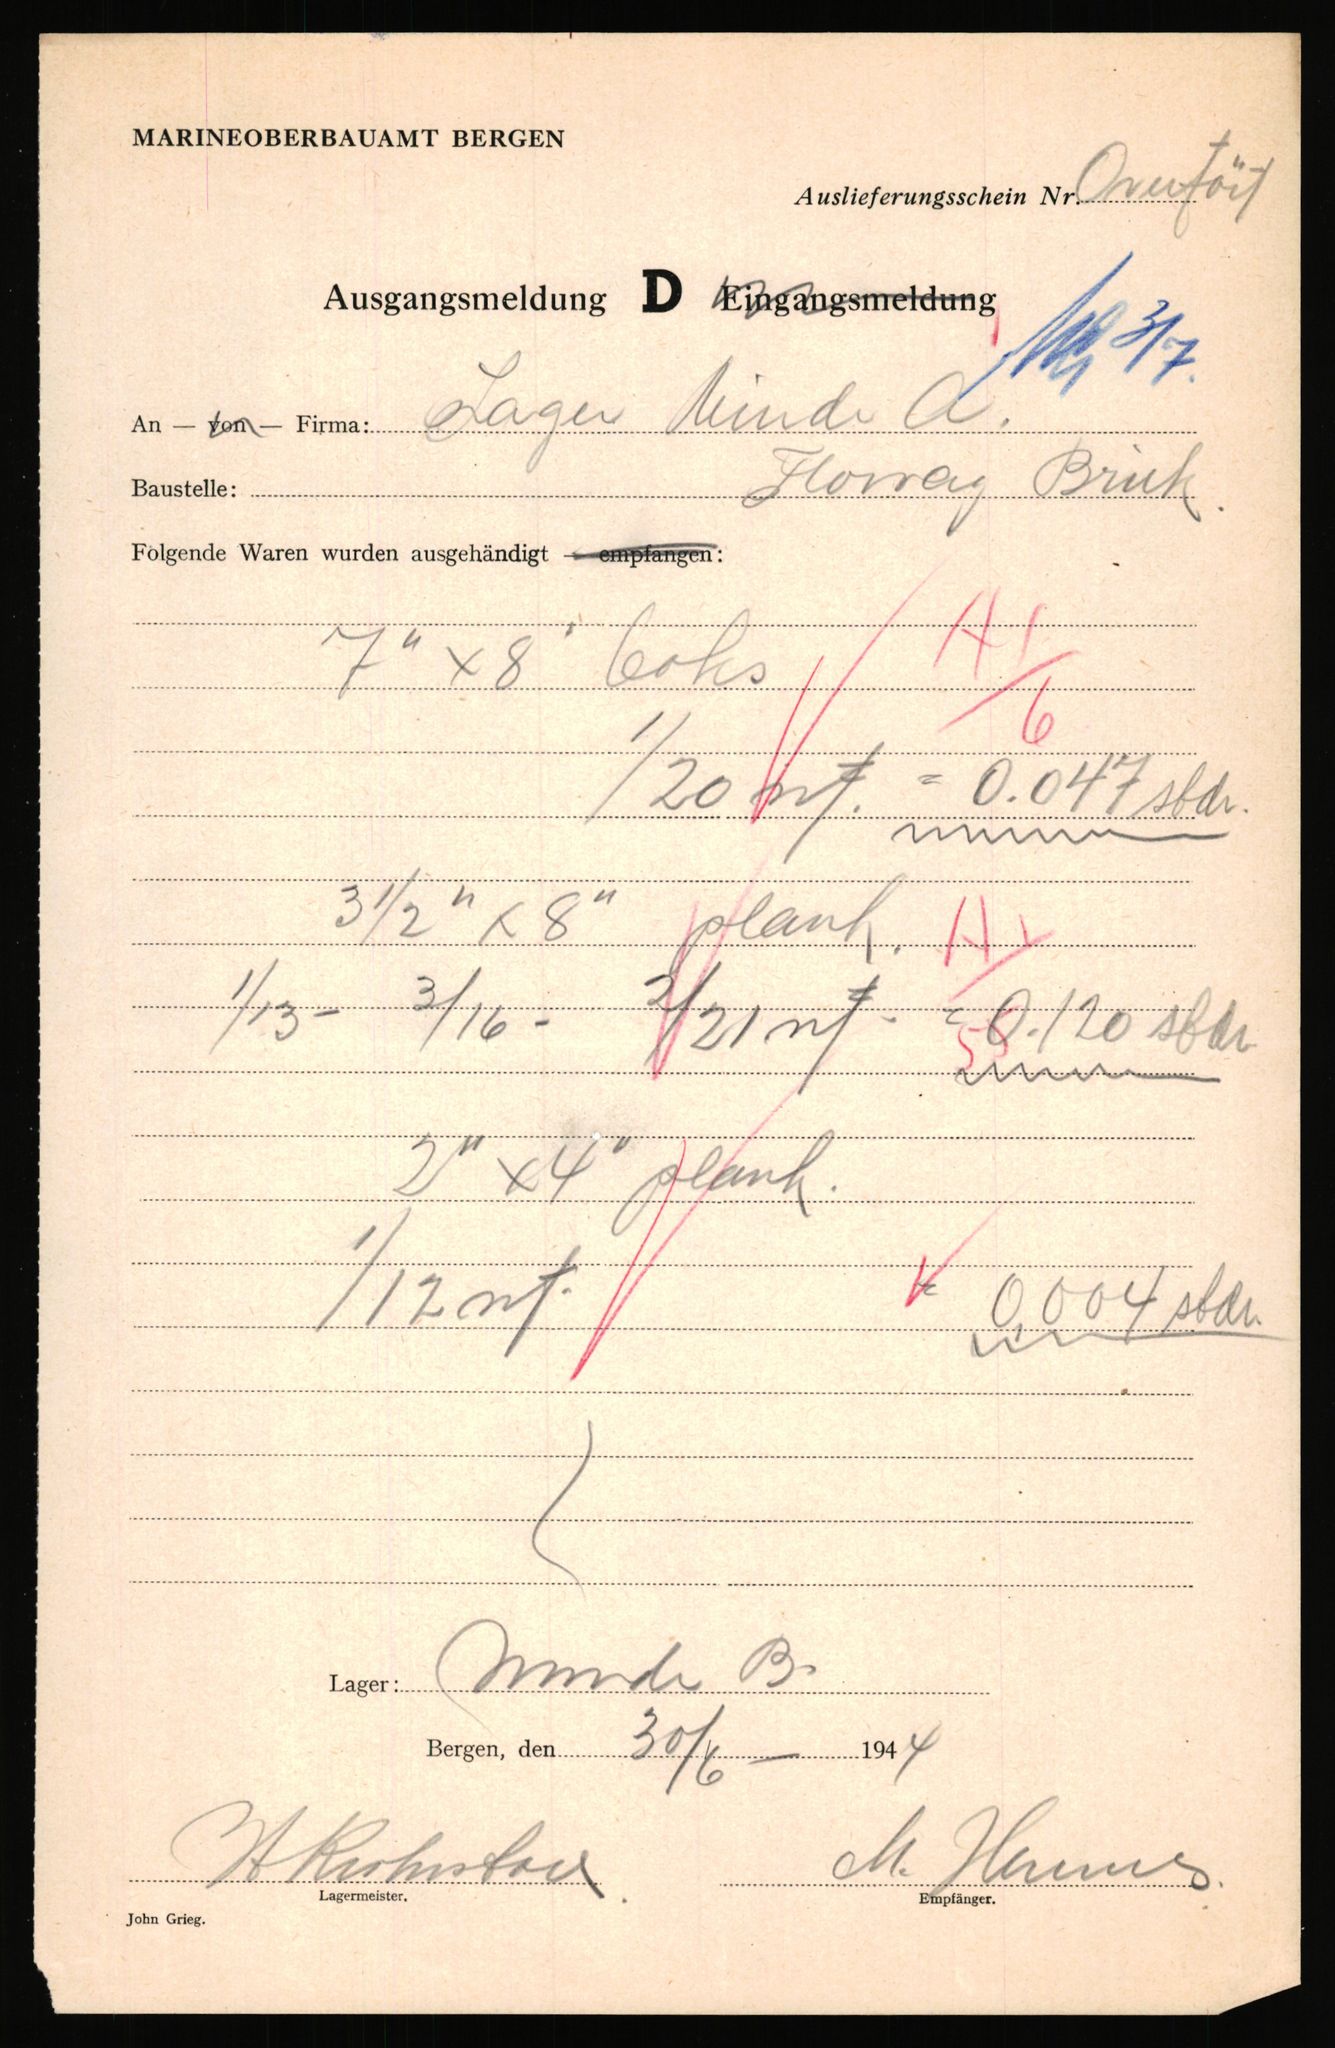 MARINEOBERBAUAMT BERGEN
Auslieferungsschein Nr. Overfört
Ausgangsmeldung D Eingangsmeldung
3/7.
An — von — Firma: Lager Minde A.
Baustelle: Florvag Bruk.
Folgende Waren wurden ausgehändigt — empfangen:
7" x 8"
A1/6
1/20 = 0.047 stdr.
3 1/2" x 8" plank.
1/13 - 3/16 - 2/21 = 0.120 stdr
2" x 4" plank.
1/12 = 0,004 stdr.
Lager: Minde B.
Bergen, den 30/6 — 1944
M.
Lagermeister.
Empfänger.
John Grieg.